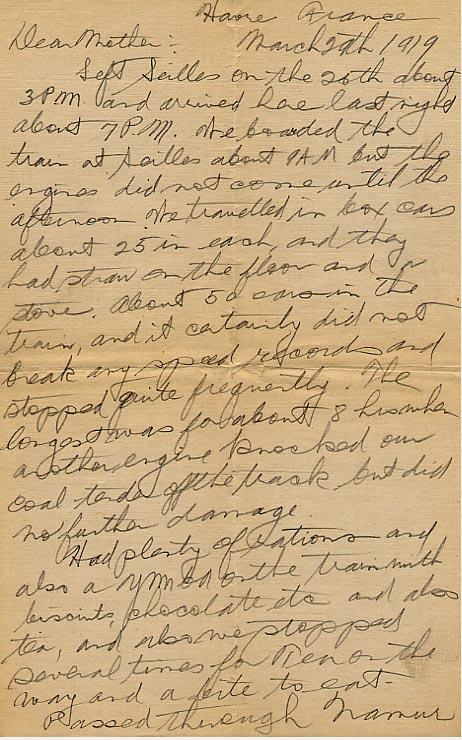 Havre France
Dear Mother:- March 29th 1919
Left Seilles on the 26th about
3 P.M. and arrived here last night
about 7 P.M. We boarded the
train at Seilles about 9 AM but the
engines did not come until the
afternoon. We travelled in box cars
about 25 in each, and they
had straw on the floor and a
stove. About 50 cars in the
train, and it certainly did not
break any speed records and
stopped quite frequently. The
longest was for about 8 hrs when
another engine knocked our
coal tender off the track but did
no further damage.
Had plenty of rations and
also a on the train with
biscuits, chocolate etc and also
tea, and also we stopped
several times for tea on the
way and a bite to eat.
Passed through Namur